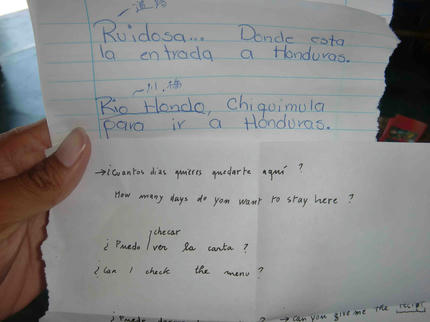 ~道路
Ruidosa... Donde esta
la entrada a Honduras.
~川,橋
Rio Hondo, Chiquimula
para ir a Honduras.
→¿Cuantos dias quieres quedarte aquí ?
How many days do you want to stay here ?
checar
¿ Puedo ver la carta ?
¿Can I check the menu ?
¿ Puedo → Can you give me the